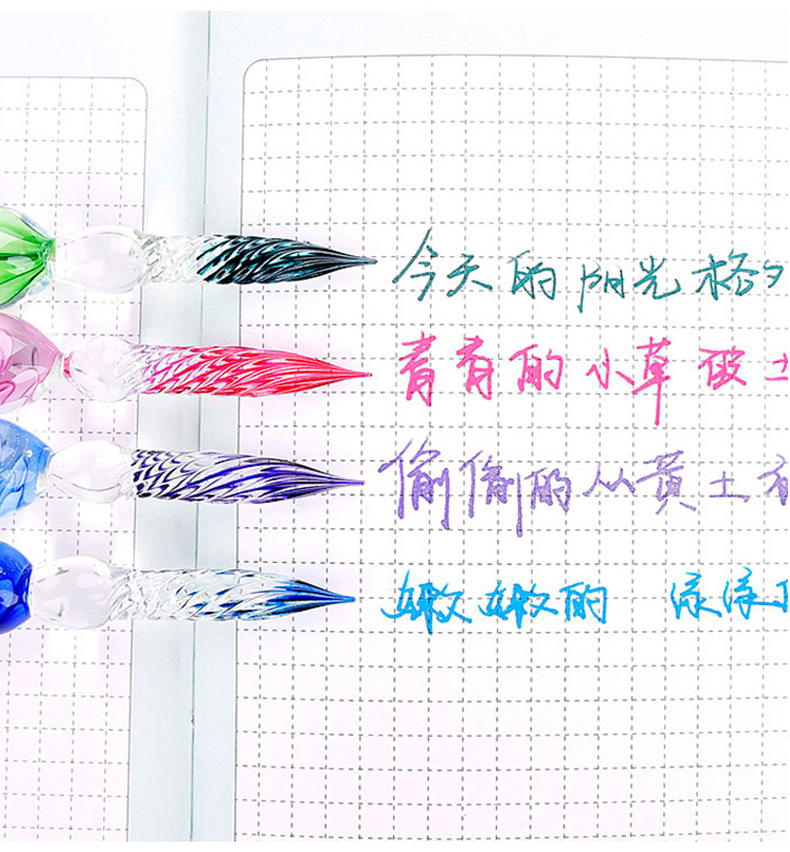 今天的阳光格
青青的小草破土
偷偷的从黄土
嫩嫩的 绿绿